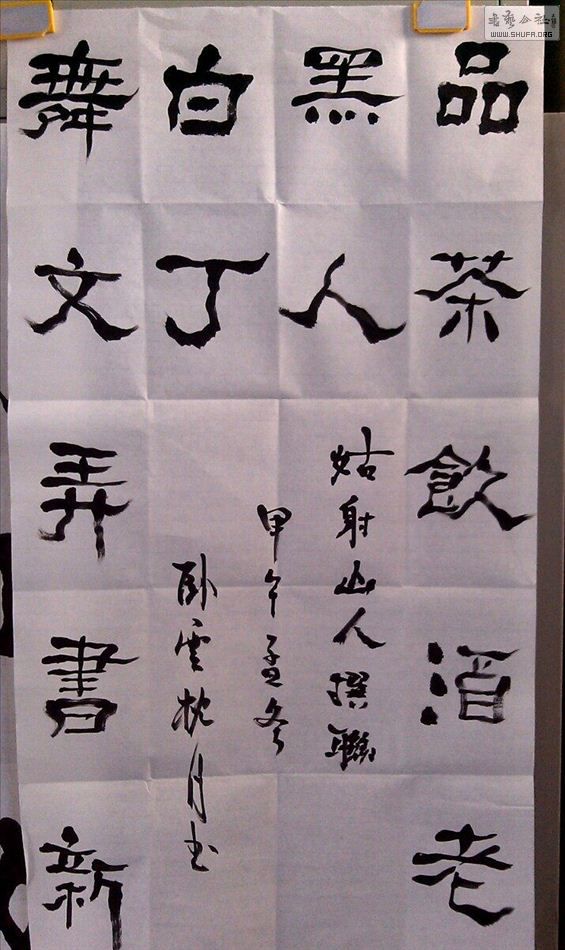 品茶飲酒老
黑人
舞文弄書新
白丁
姑射山人撰聯
甲午孟冬
卧雲枕月书
書藝公社
WWW.SHUFA.ORG